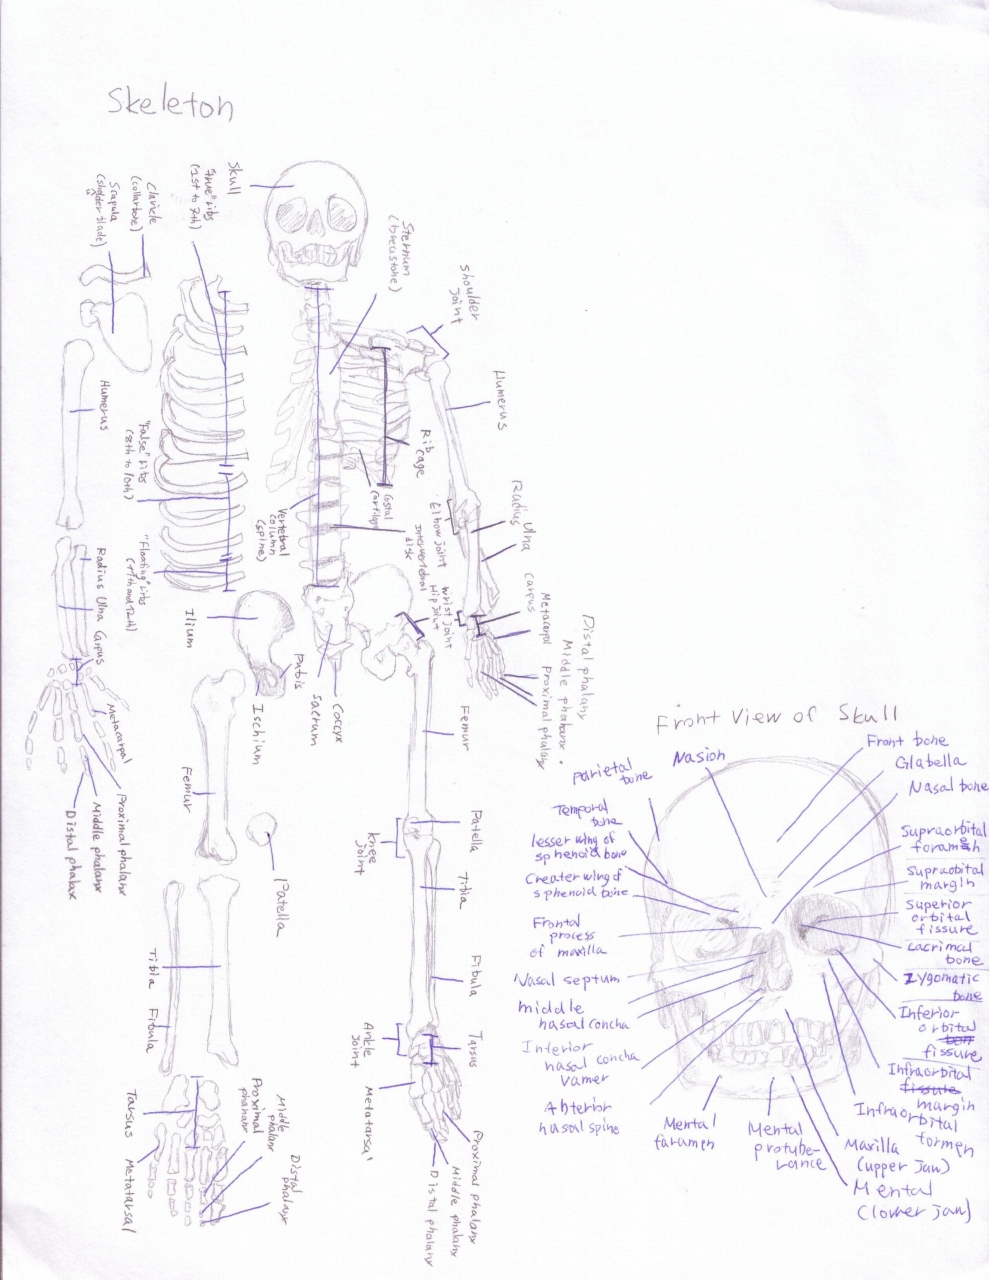 Skeleton
Skull
"true" ribs
(1st to 7th)
Clavicle
(collarbone)
Scapula
(sholder blade)
u
Sternum
(breastbone)
Shoulder
Joint
Humerus
Rib
cage
Costal
cartilage
Radius
Ulna
Elbow joint
Intervertebral
disk
Vertebral
column
(spine)
Carpus
Metacarpal
Wrist joint
Hip joint
Distal phalanx
Middle phalanx
Proximal phalanx
Humerus
"False" ribs
(8th to 10th)
"Floating" ribs
(11th and 12th)
Radius Ulna Carpus
Metacarpal
Proximal phalanx
Middle phalanx
Distal phalax
Ilium
Pubis
Ischium
Sacrum
Coccyx
Femur
Femur
Patella
Patella
knee
Joint
Tibia
Fibula
Tibia
Fibula
Ankle
Joint
Tarsus
Metatarsal
Proximal phalanx
Middle phalanx
Distal phalanx
Tarsus
Metatarsal
Proximal
phalanx
Middle
phalanx
Distal
phalanx
Front View of Skull
Nasion
parietal
bone
Temporal
bone
lesser wing of
sphenoid bone
Creater wing of
sphenoid bone
Frontal
process
of maxilla
Nasal septum
middle
nasal concha
Interior
nasal concha
Vamer
Anterior
nasal spine
Mental
faramen
Mental
protube-
rance
Front bone
Glabella
Nasal bone
Supraorbital
foramen
Supraobital
margin
Superior
orbital
fissure
Lacrimal
bone
Zygomatic
bone
Inferior
orbital
fissure
Infraorbital
margin
Infraorbital
formen
Maxilla
(upper jaw)
Mental
(lower jaw)